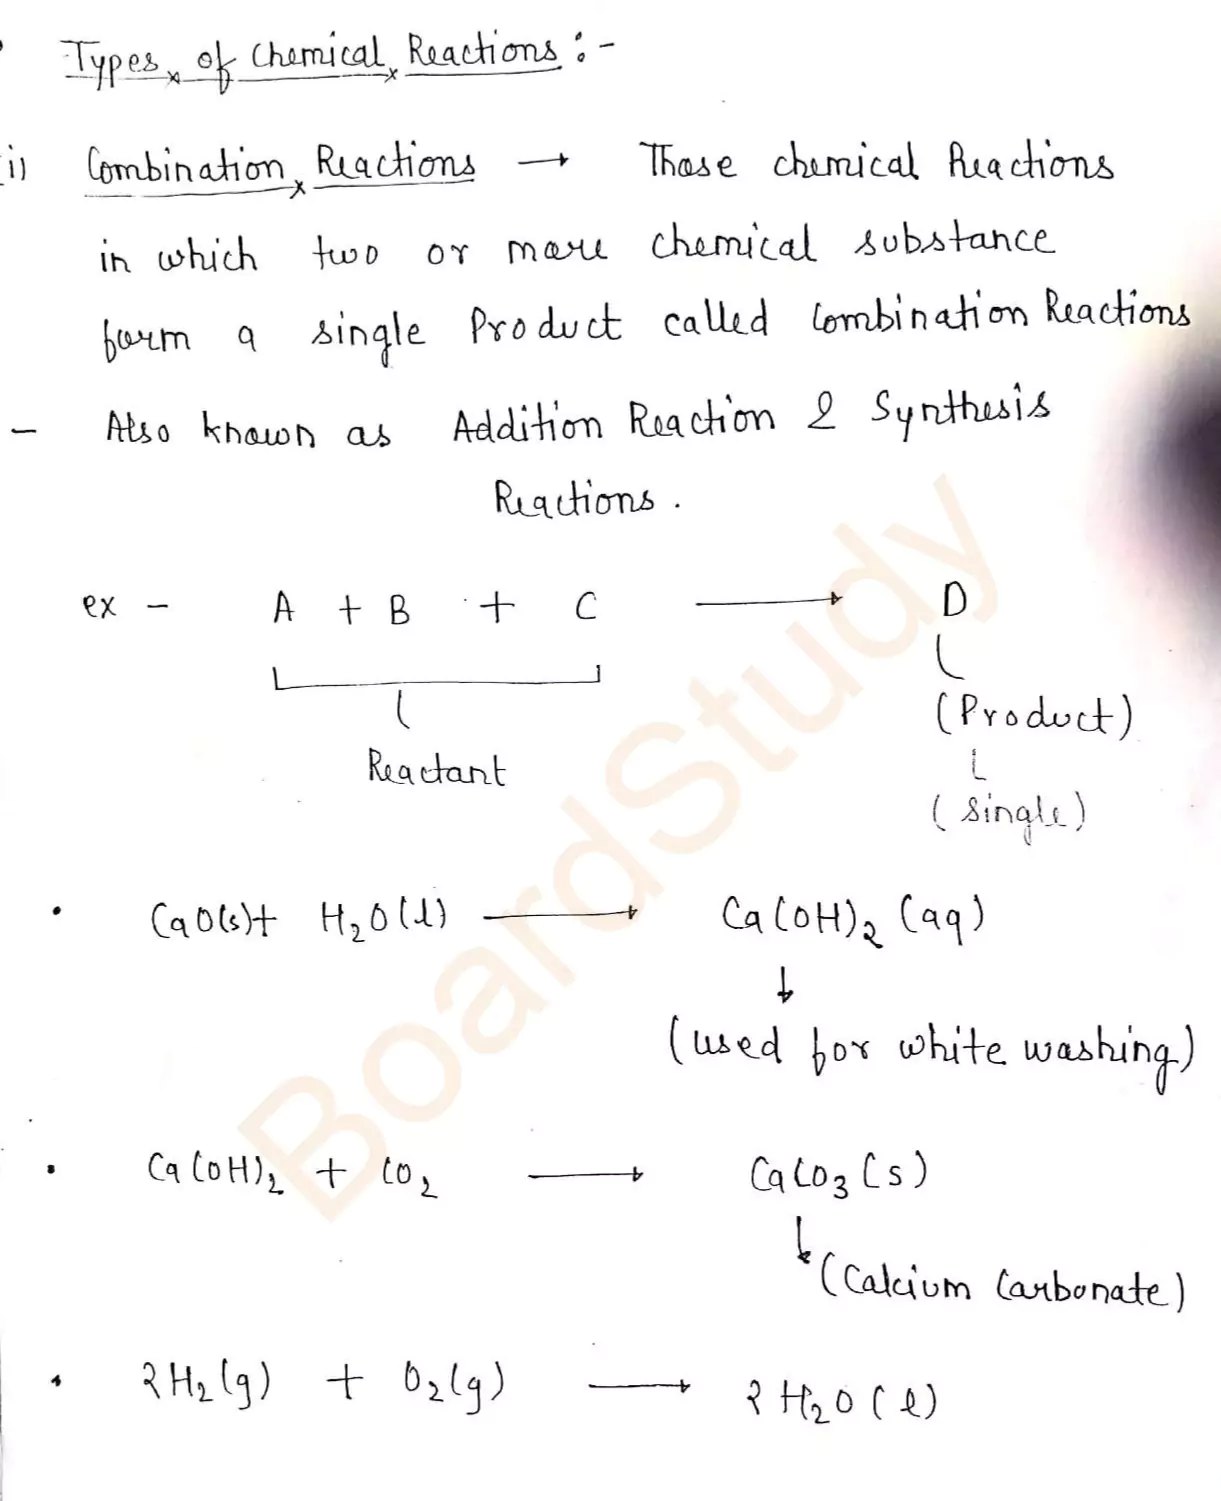 Types of Chemical Reactions :-
i) Combination Reactions → Those chemical Reactions
in which two or more chemical substance
form a single Product called Combination Reactions
- Also known as Addition Reaction & Synthesis
Reactions.
ex - A + B + C → D
(Product)
Reactant
(single)
• CaO(s) + H₂O(l) → Ca(OH)₂ (aq)
(used for white washing)
• Ca(OH)₂ + CO₂ → CaCO₃(s)
(Calcium Carbonate)
• 2H₂(g) + O₂(g) → 2H₂O(l)
BoardStudy